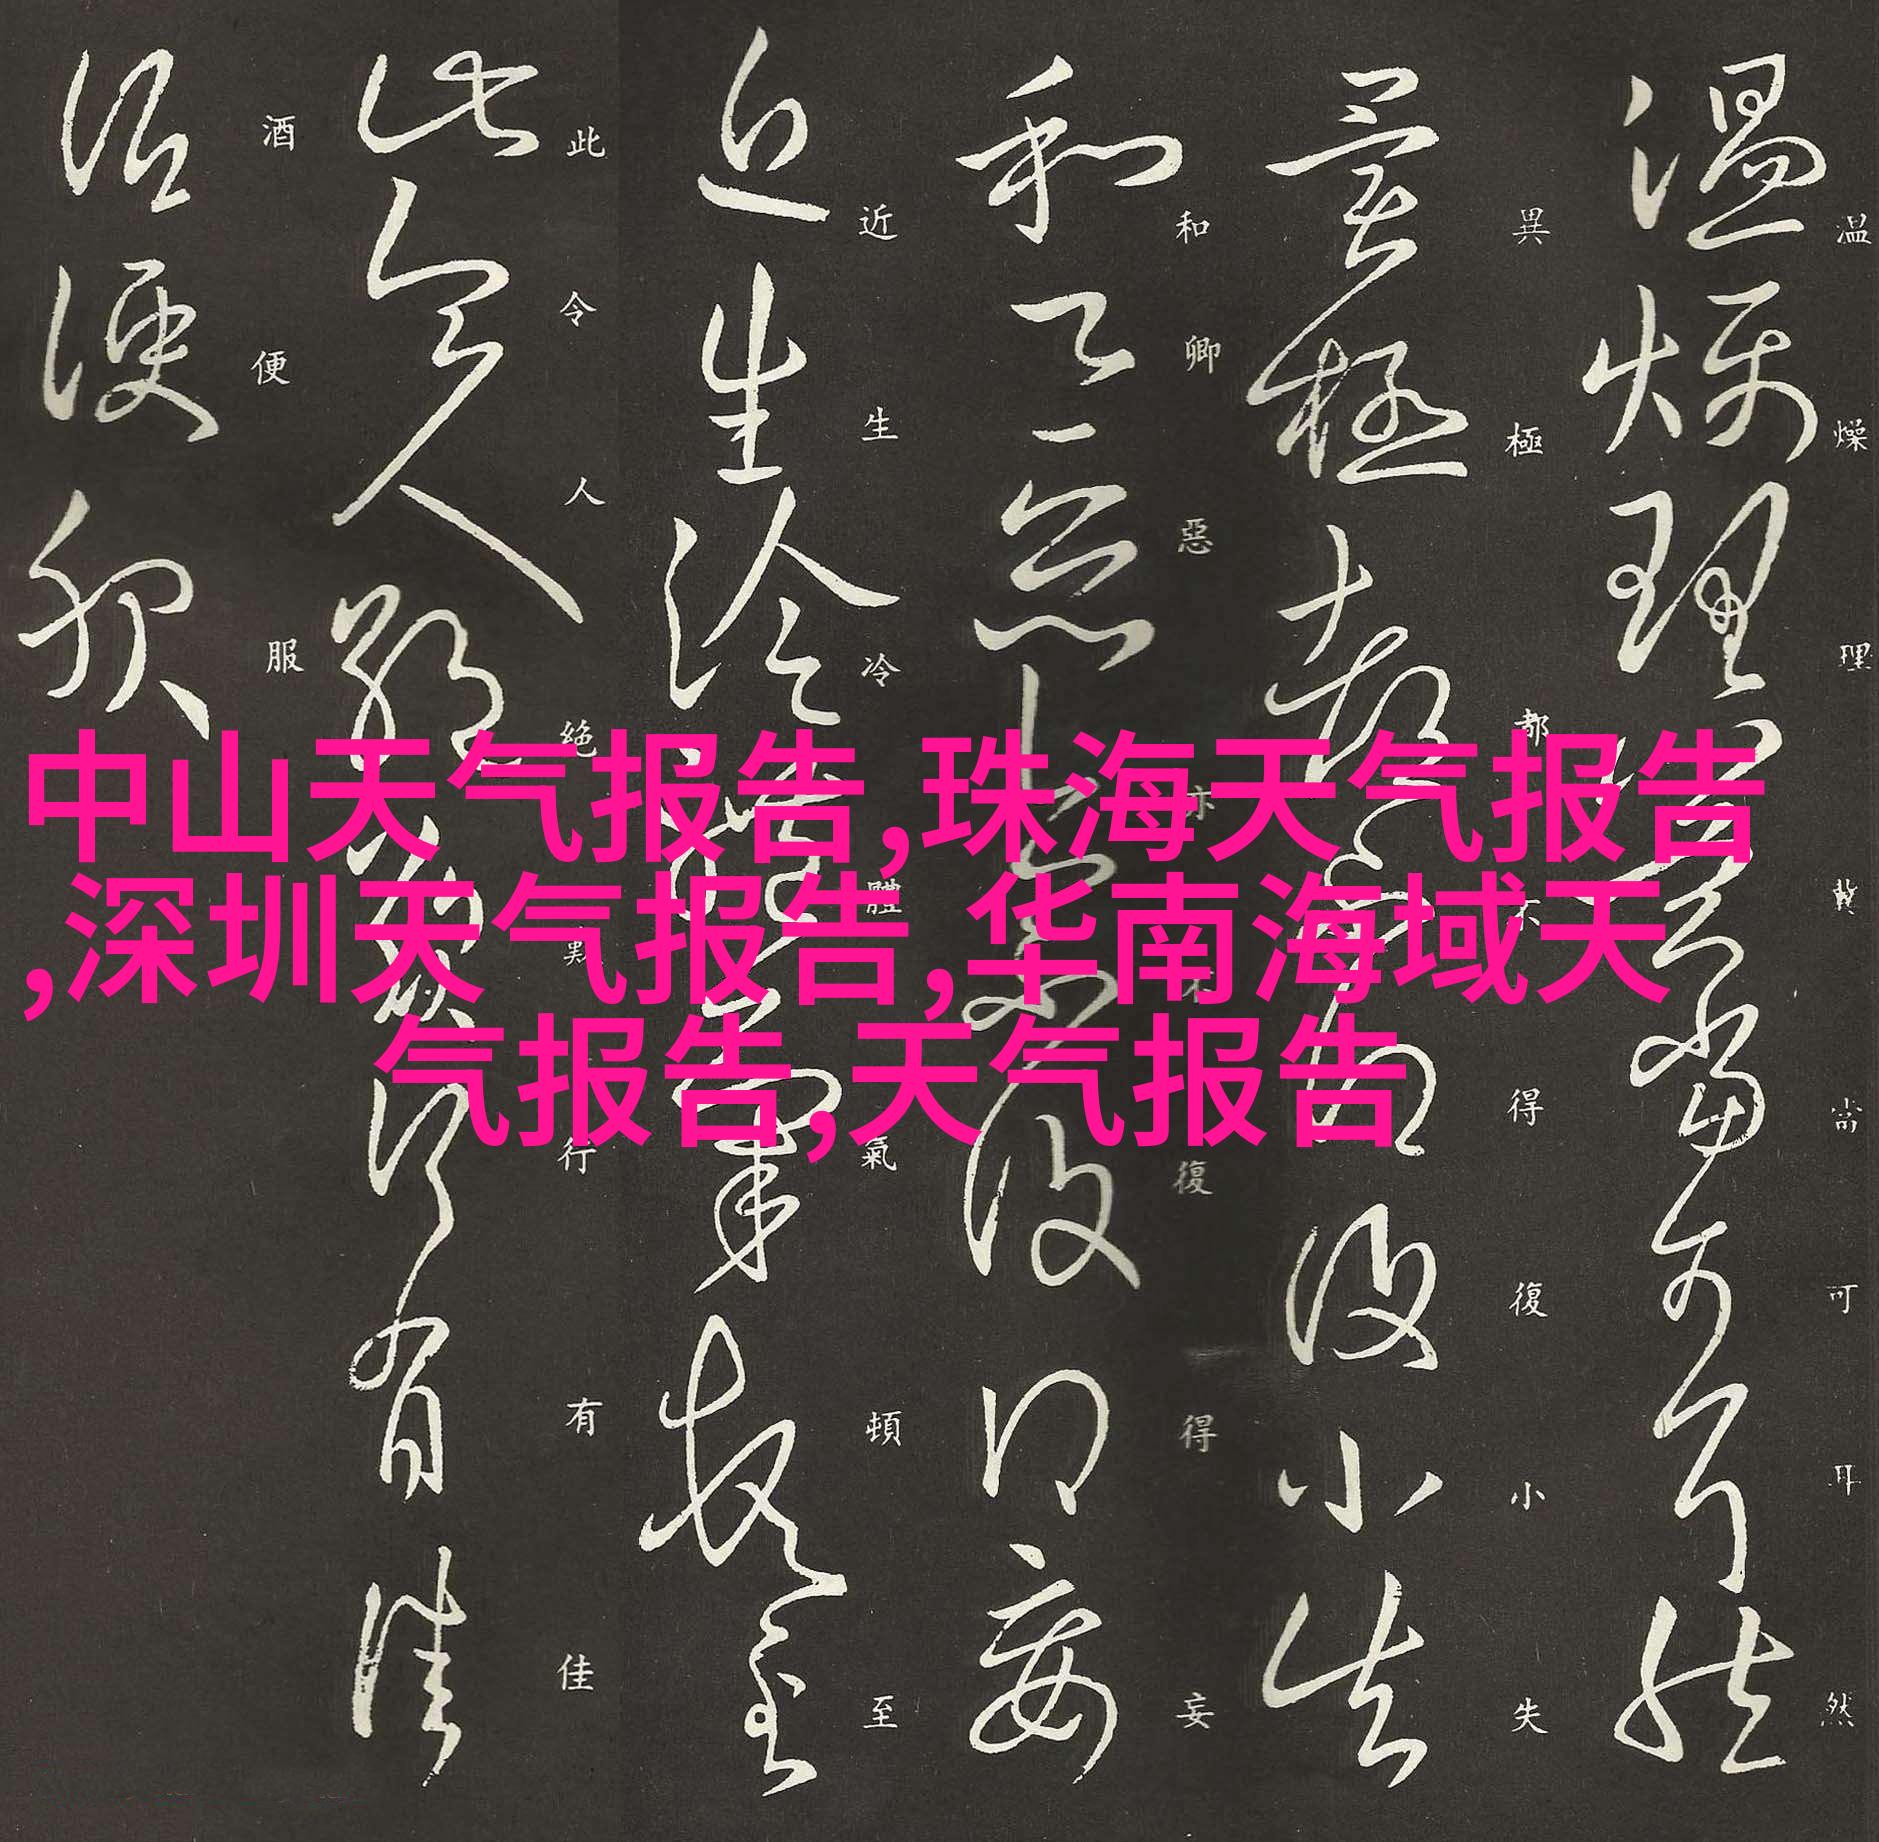 中山天气报告,珠海天气报告
,深圳天气报告,华南海域天
气报告,天气报告
温燥理冀尚可耳然
異極都不得復小失
和卿惡亦不復得妄
近生冷體氣頓至
此令人絕歎行有佳
酒便服